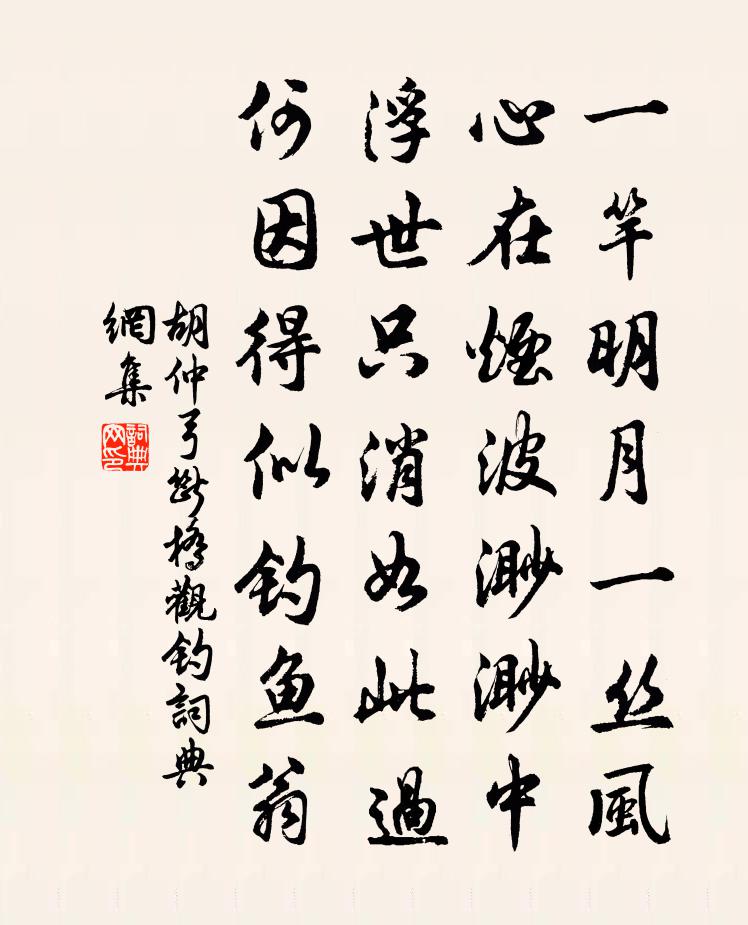 一竿明月一丝風
心在煙波渺渺中
浮世只消如此過
何因得似钓鱼翁
胡仲弓斷橋觀钓詞典
網集
詞典網印